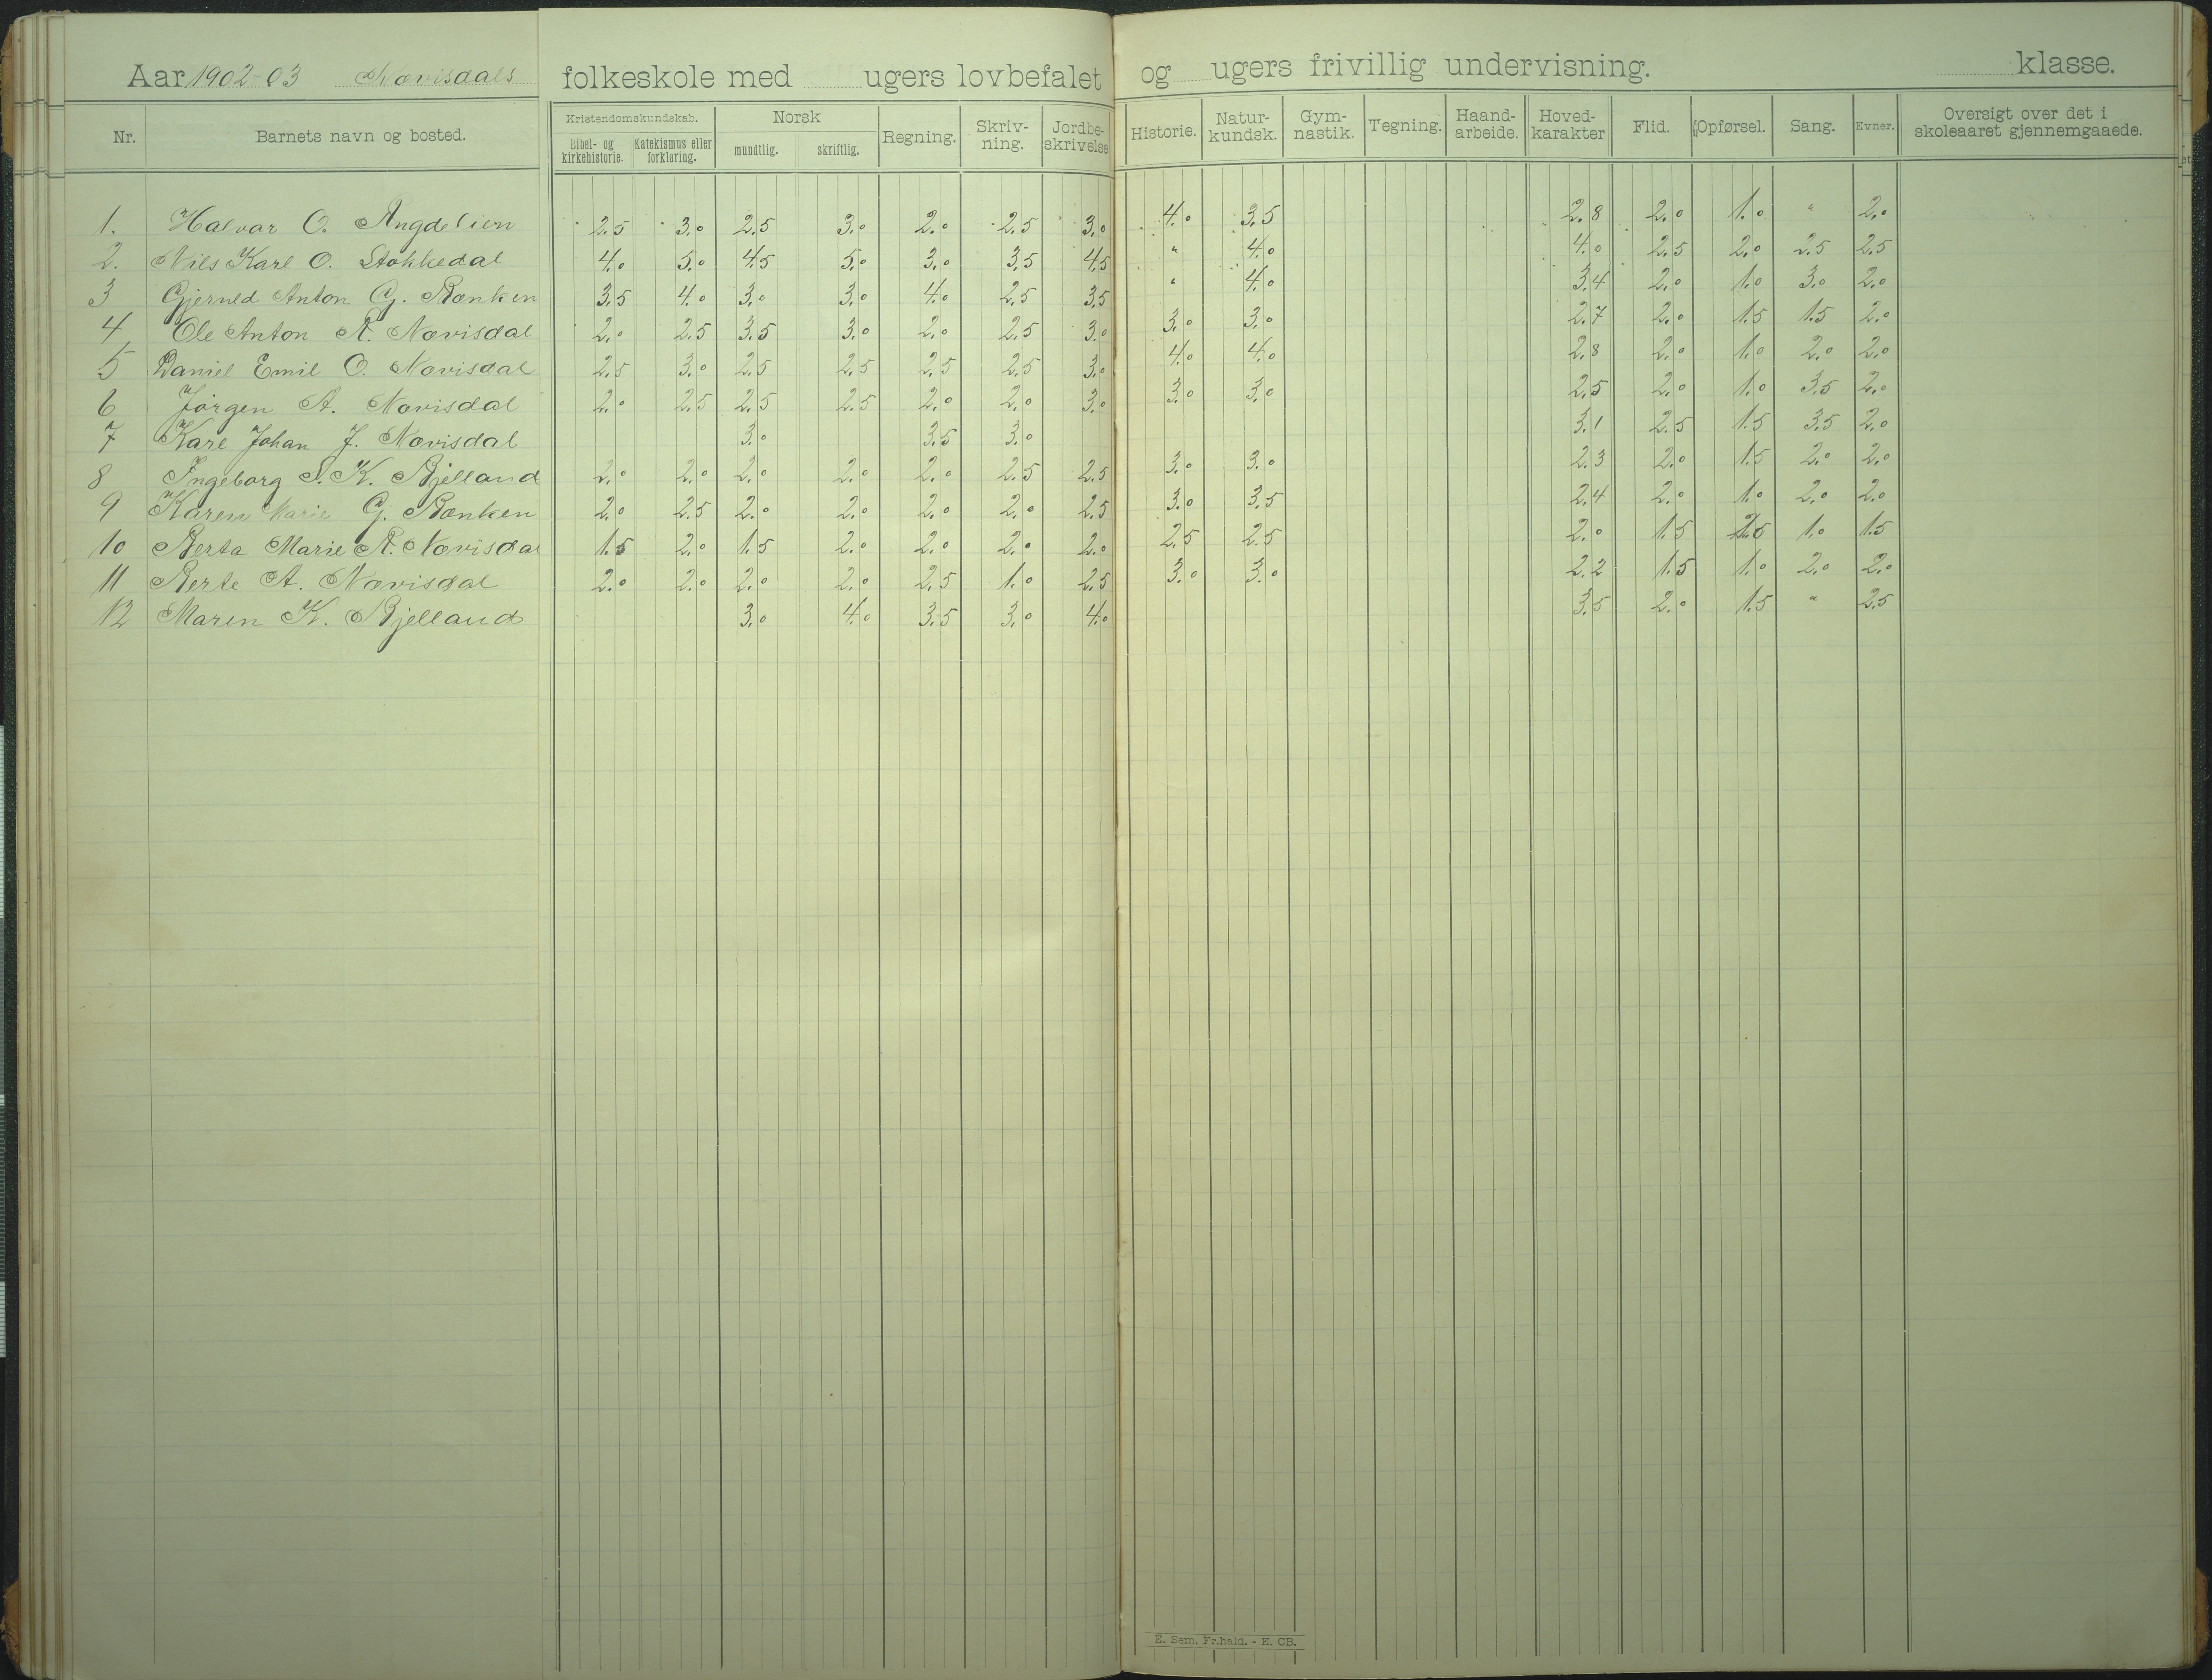 Aar 1902-03 Nævisdals folkeskole med ugers lovbefalet og ugers frivillig undervisning. klasse.
Nr. Barnets navn og bosted. Kristendomskundskab. Bibel- og kirkehistorie. Katekismus eller forklaring. Norsk mundtlig. skriftlig. Regning. Skriv-ning. Jordbe-skrivelse Historie. Natur-kundsk. Gym-nastik. Tegning. Haand-arbeide. Hoved-karakter Flid. Opførsel. Sang. Evner. Oversigt over det i skoleaaret gjennemgaaede.
1. Halvor O. 2.5 3.0 2.5 3.0 2.0 2.5 3.0 4.0 3.5 2.8 2.0 1.0 " 2.0
2. Nils Karl O. Stokkedal 4.0 5.0 4.5 5.0 3.0 3.5 4.5 " 4.0 4.0 2.5 2.0 2.5 2.5
3 Anton G. Bænken 3.5 4.0 3.0 3.0 4.0 2.5 3.5 " 4.0 3.4 2.0 1.0 3.0 2.0
4 Ole Anton A. Nævisdal 2.0 2.5 3.5 3.0 2.0 2.5 3.0 3.0 3.0 2.7 2.0 1.5 1.5 2.0
5 Daniel Emil O. Nævisdal 2.5 3.0 2.5 2.5 2.5 2.5 3.0 4.0 4.0 2.8 2.0 1.0 2.0 2.0
6 Jørgen A. Nævisdal 2.0 2.5 2.5 2.5 2.0 2.0 3.0 3.0 3.0 2.5 2.0 1.0 3.5 2.0
7 Karl Johan J. Nævisdal 3.0 3.5 3.0 3.1 2.5 1.5 3.5 2.0
8 Ingeborg S. K. Bjelland 2.0 2.0 2.0 2.0 2.0 2.5 2.5 3.0 3.0 2.3 2.0 1.5 2.0 2.0
9 Karen Marie G. Bænken 2.0 2.5 2.0 2.0 2.0 2.0 2.5 3.0 3.5 2.4 2.0 1.0 2.0 2.0
10 Berta Marie A. Nævisdal 1.5 2.0 1.5 2.0 2.0 2.0 2.0 2.5 2.5 2.0 1.5 1.0 1.5
11 Berte A. Nævisdal 2.0 2.0 2.0 2.0 2.5 1.0 2.5 3.0 3.0 2.2 1.5 1.0 2.0 2.0
12 Maren K. Bjelland 3.0 4.0 3.5 3.0 4.0 3.5 2.0 1.5 " 2.5
E. Sem, Fr.hald. - E. CB.